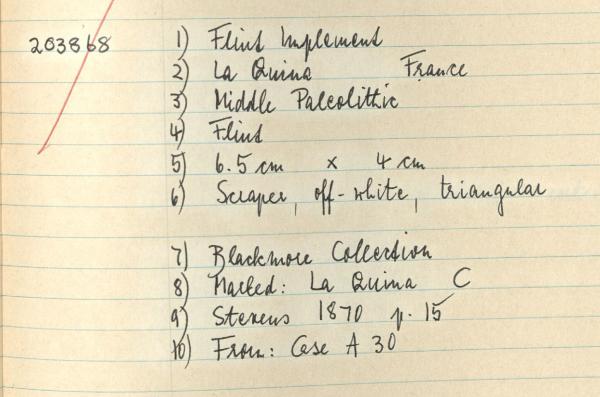 203868 1) Flint Implement
2) La Quina France
3) Middle Paleolithic
4) Flint
5) 6.5 cm x 4 cm
6) Scraper, off-white, triangular
7) Blackmore Collection
8) Marked: La Quina C
9) Stevens 1870 p. 15
10) From: Case A 30